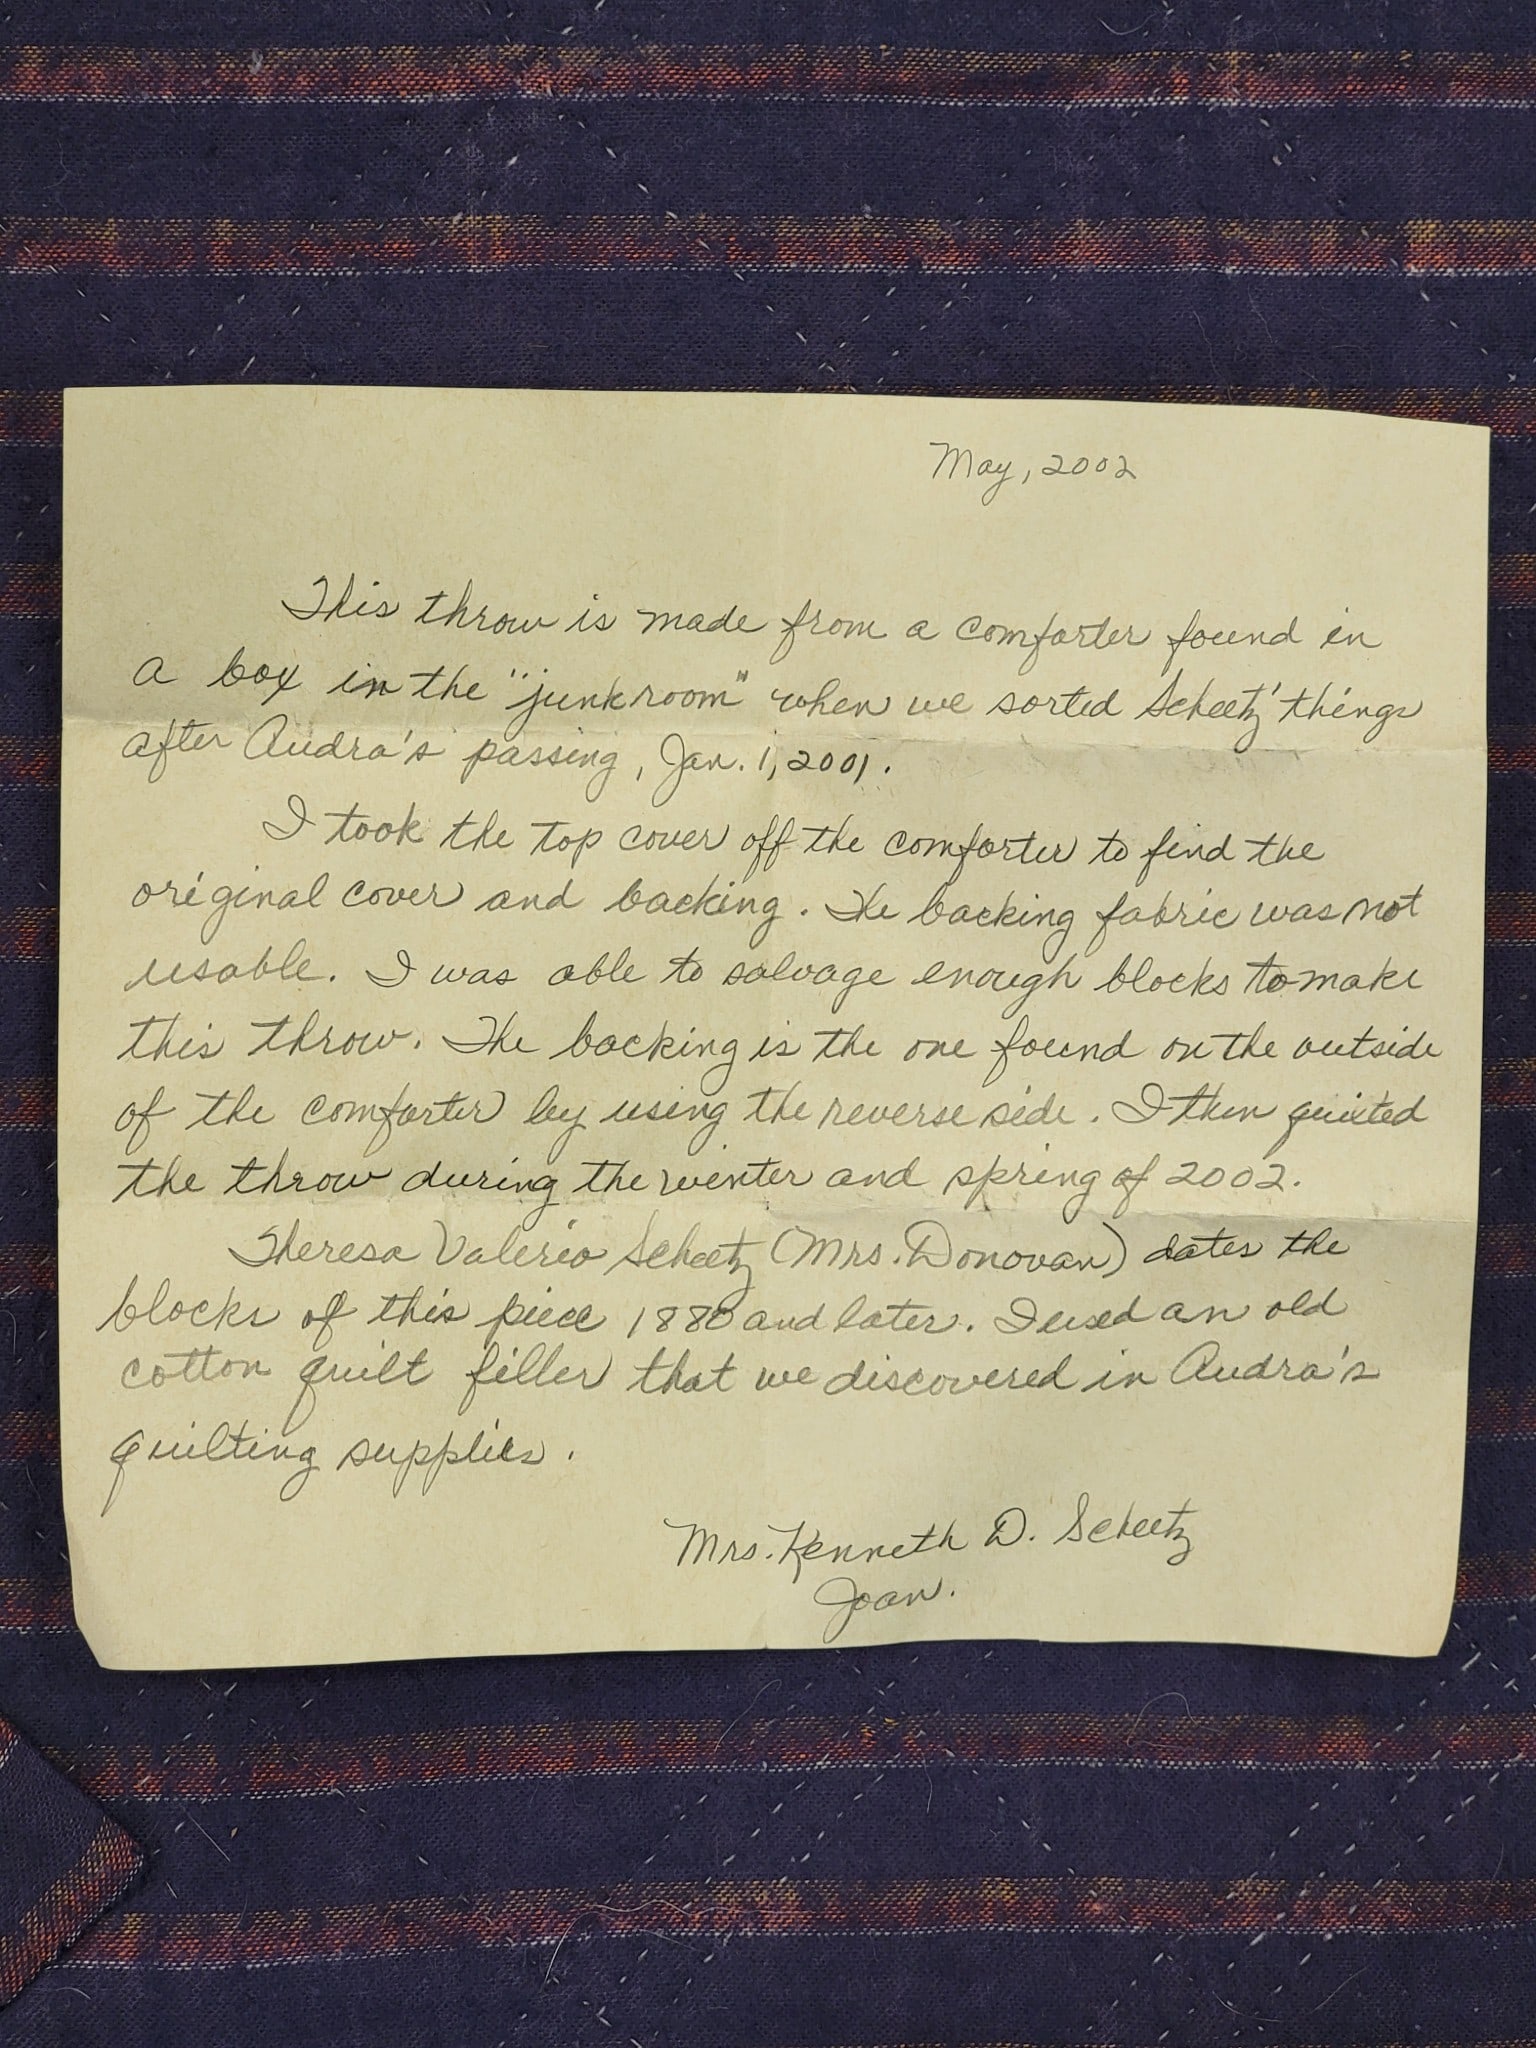 May, 2002
This throw is made from a comforter found in
a box in the "junk room" when we sorted Scheetz' things
after Audra's passing, Jan. 1, 2001.
I took the top cover off the comforter to find the
original cover and backing. The backing fabric was not
usable. I was able to salvage enough blocks to make
this throw. The backing is the one found on the outside
of the comforter by using the reverse side. I then quilted
the throw during the winter and spring of 2002.
Theresa Valerio Scheetz (Mrs. Donovan) dates the
blocks of this piece 1880 and later. I used an old
cotton quilt filler that we discovered in Audra's
quilting supplies.
Mrs. Kenneth D. Scheetz
Joan.